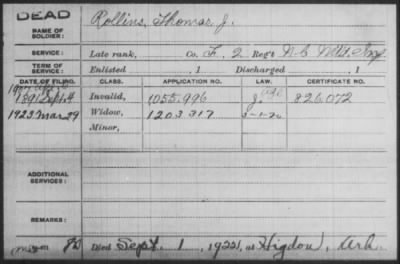 DEAD
NAME OF SOLDIER: Rollins, Thomas J.
SERVICE: Late rank, Co. F, 2 Reg't N.C. Mtd. Inf.
TERM OF SERVICE: Enlisted , 1 Discharged , 1
DATE OF FILING. CLASS. APPLICATION NO. LAW. CERTIFICATE NO.
1891 Sept. 4 Invalid, 1055.996 826.072
1923 Mar 29 Widow, 1203317
Minor,
ADDITIONAL SERVICES:
REMARKS:
Died Sept. 1, 1922, at Higdon, Ark.